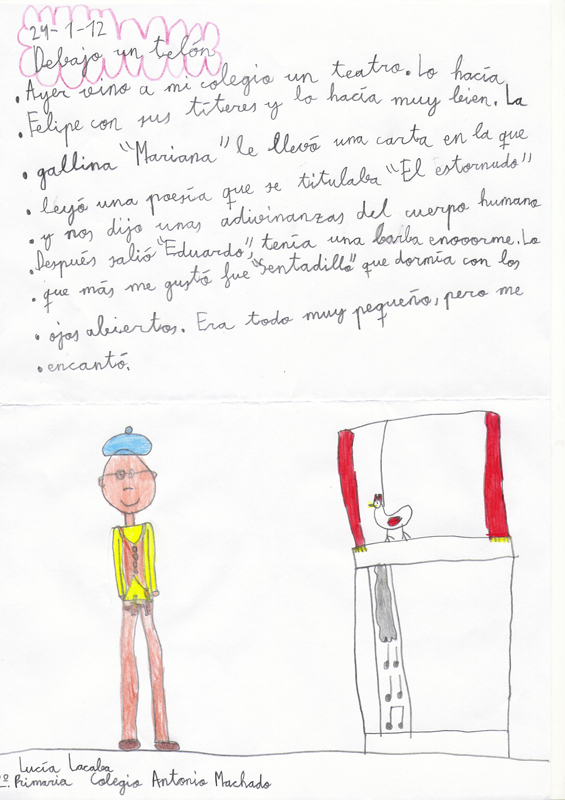 24-1-12
Debajo un telón
.Ayer vino a mi colegio un teatro. Lo hacía
.Felipe con sus títeres y lo hacía muy bien. La
.gallina "Mariana" le llevó una carta en la que
.leyó una poesía que se titulaba "El estornudo"
.y nos dijo unas adivinanzas del cuerpo humano
.Después salió "Eduardo", tenía una barba enooorme. Lo
.que más me gustó fue "Sentadillo" que dormía con los
.ojos abiertos. Era todo muy pequeño, pero me
.encantó.
Lucía Lacalba
2º. Primaria Colegio Antonio Machado